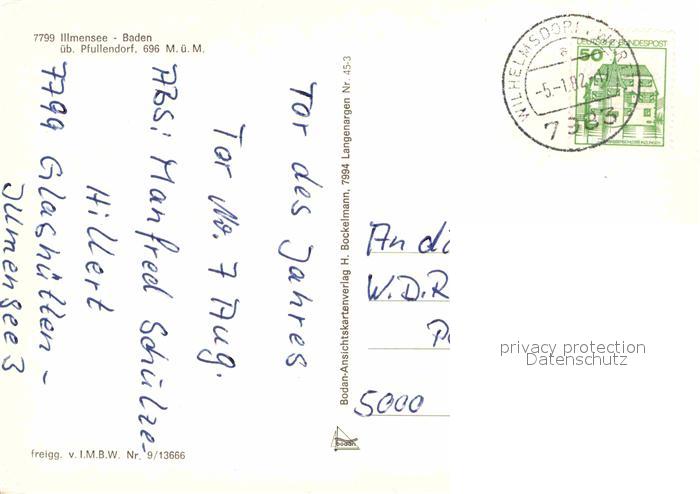 7799 Illmensee - Baden
üb. Pfullendorf, 696 M. ü. M.
Tor des Jahres
Tor Nr. 7 Aug.
Abs: Manfred Schülze-
Hillert
7799 Glashütten-
Jllmensee 3
freigg. v. I.M.B.W. Nr. 9/13666
Bodan-Ansichtskartenverlag H. Bockelmann, 7994 Langenargen Nr. 45-3
bodan
WILHELMSDORF, WÜRTT
a
-5.-1.82
7983
DEUTSCHE BUNDESPOST
50
An di
W.D.R
5000
privacy protection
Datenschutz